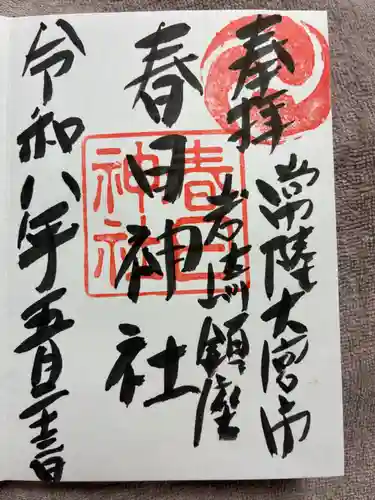 奉拝
常陸大宮市
鎮座
春日神社
春日
神社
令和八年五月二十三日